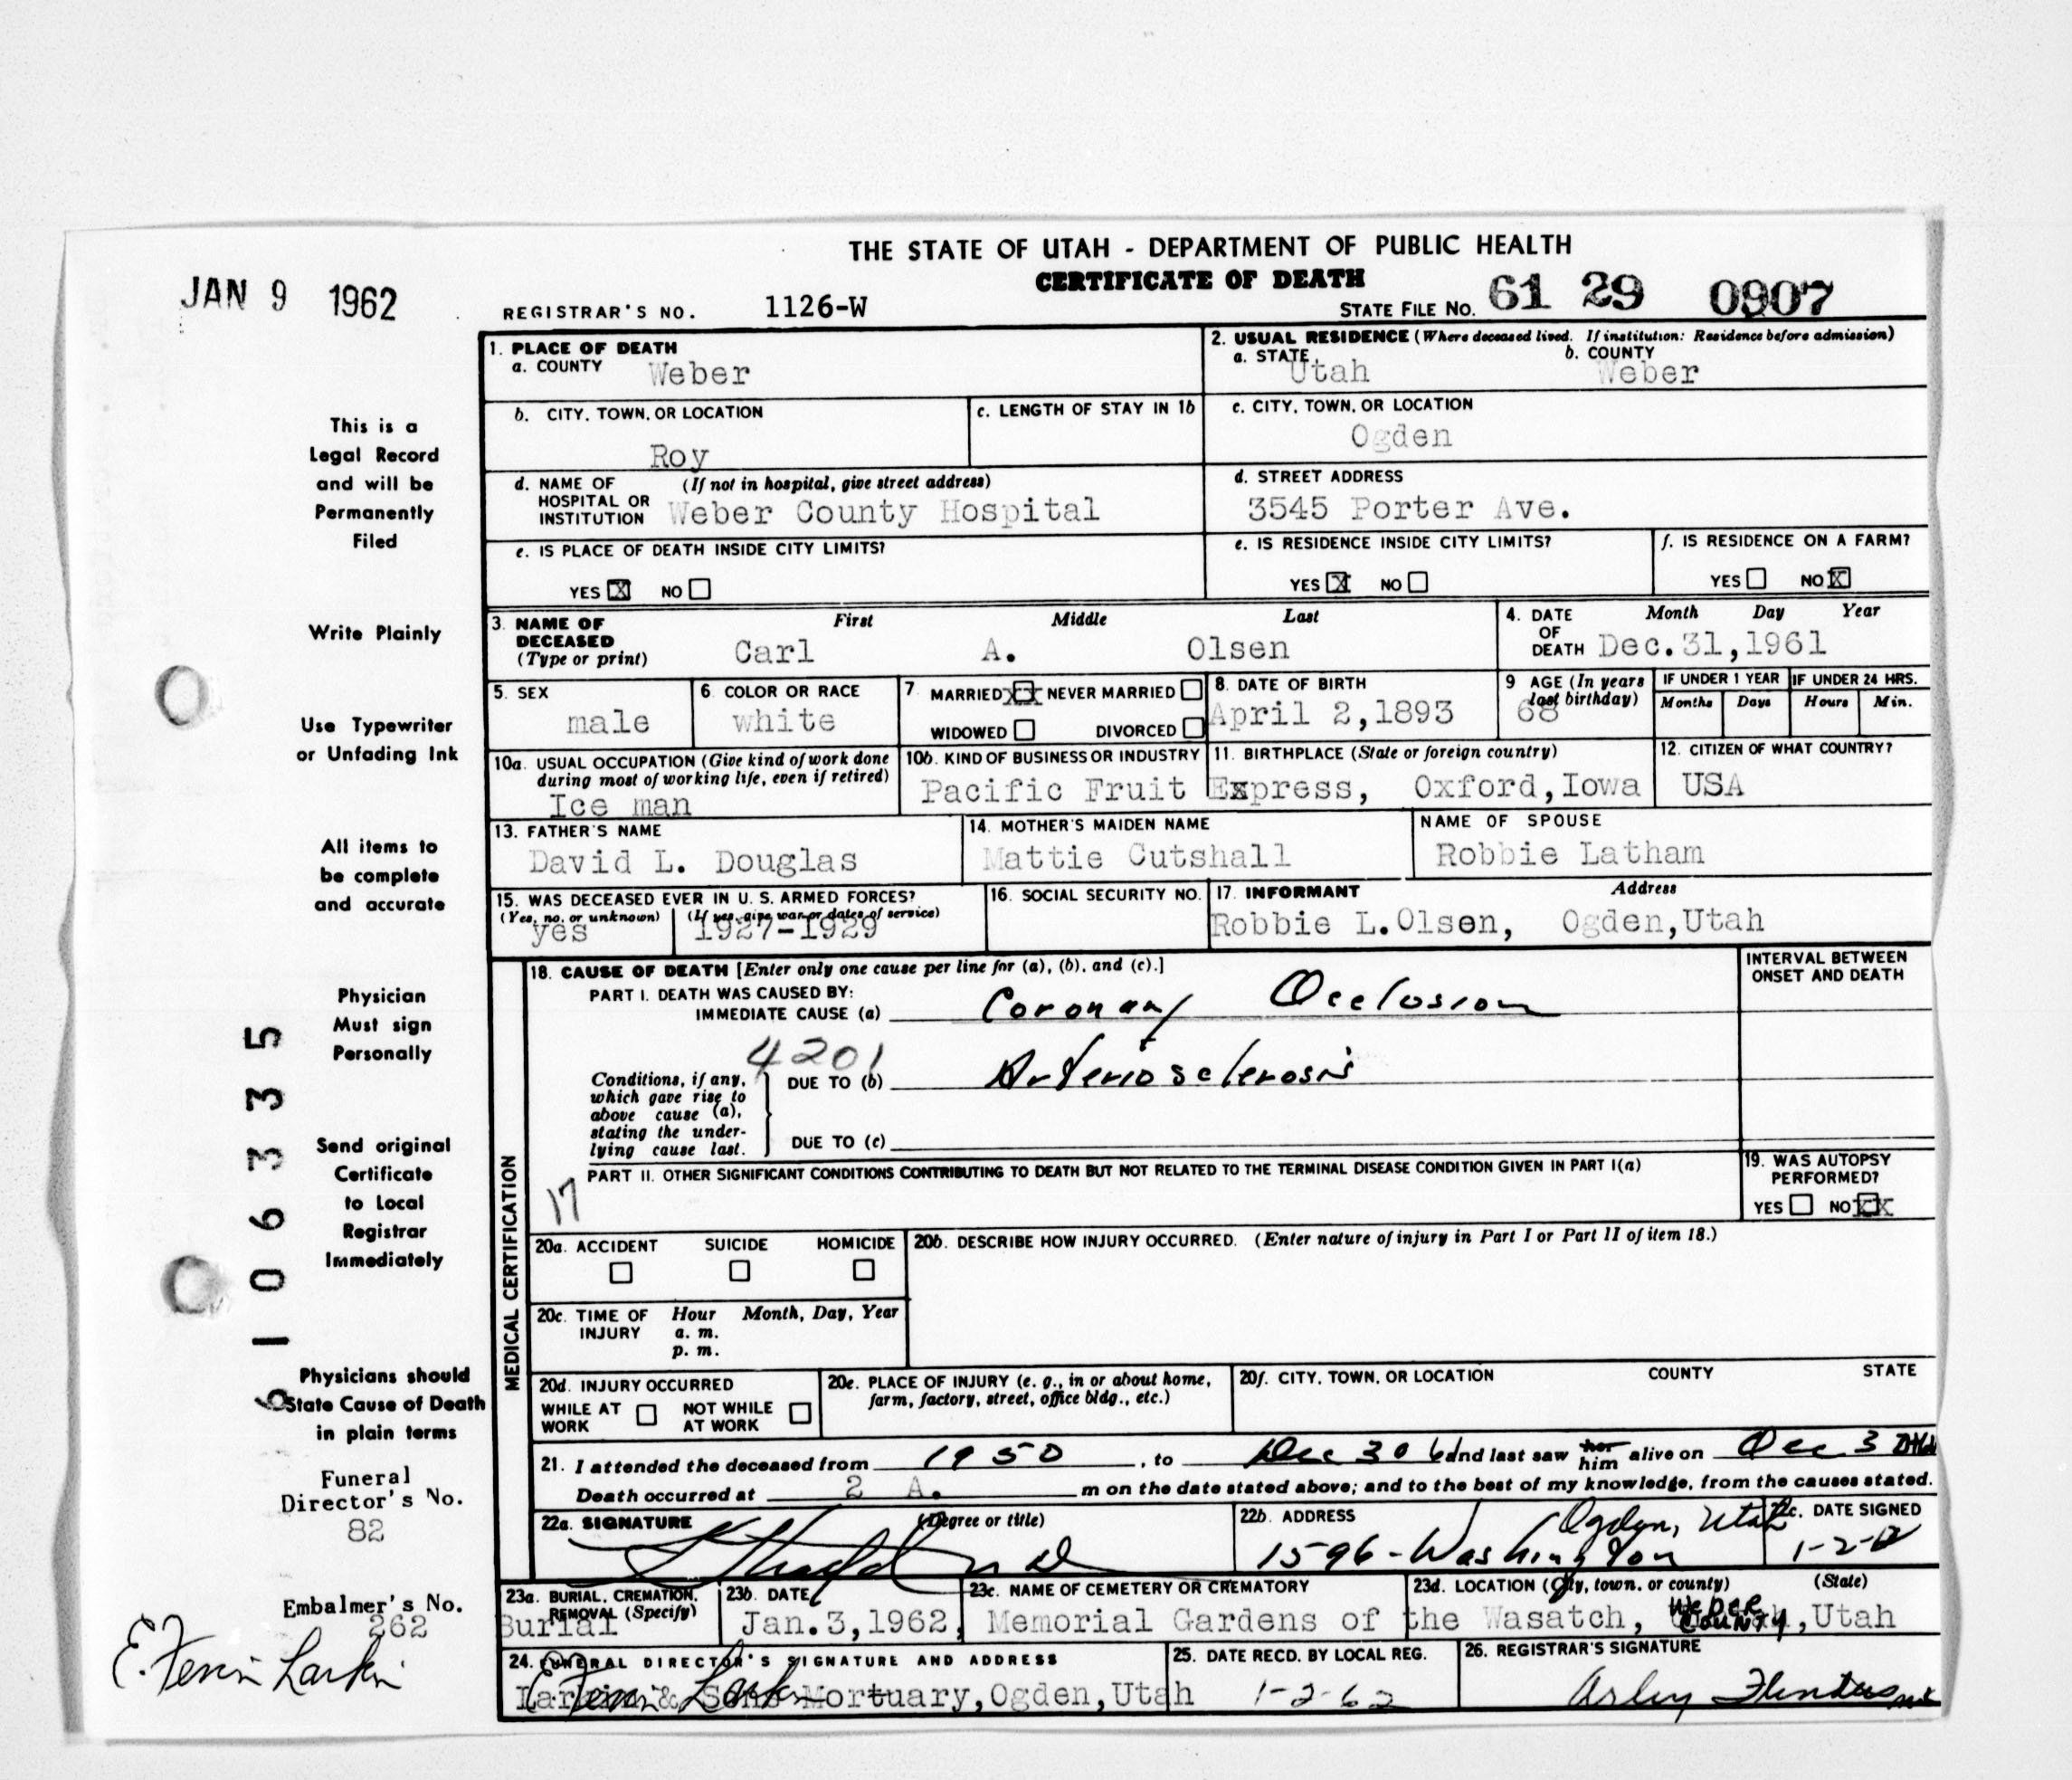 THE STATE OF UTAH - DEPARTMENT OF PUBLIC HEALTH
CERTIFICATE OF DEATH
JAN 9 1962
REGISTRAR'S NO. 1126-W
STATE FILE NO. 61 29 0907
1. PLACE OF DEATH
a. COUNTY Weber
2. USUAL RESIDENCE (Where deceased lived. If institution: Residence before admission)
a. STATE Utah b. COUNTY Weber
b. CITY, TOWN, OR LOCATION Roy
c. LENGTH OF STAY IN 1b
c. CITY, TOWN, OR LOCATION
Ogden
d. NAME OF (If not in hospital, give street address)
HOSPITAL OR
INSTITUTION Weber County Hospital
d. STREET ADDRESS
3545 Porter Ave.
e. IS PLACE OF DEATH INSIDE CITY LIMITS?
YES X NO
e. IS RESIDENCE INSIDE CITY LIMITS?
YES X NO
f. IS RESIDENCE ON A FARM?
YES NO X
3. NAME OF First Middle Last
DECEASED
(Type or print) Carl A. Olsen
4. DATE Month Day Year
OF
DEATH Dec. 31, 1961
5. SEX
male
6. COLOR OR RACE
white
7. MARRIED XX NEVER MARRIED
WIDOWED DIVORCED
8. DATE OF BIRTH
April 2, 1893
9 AGE (In years
last birthday)
68
IF UNDER 1 YEAR IF UNDER 24 HRS.
Months Days Hours Min.
10a. USUAL OCCUPATION (Give kind of work done
during most of working life, even if retired)
Ice man
10b. KIND OF BUSINESS OR INDUSTRY
Pacific Fruit Express,
11. BIRTHPLACE (State or foreign country)
Oxford, Iowa
12. CITIZEN OF WHAT COUNTRY?
USA
13. FATHER'S NAME
David L. Douglas
14. MOTHER'S MAIDEN NAME
Mattie Cutshall
NAME OF SPOUSE
Robbie Latham
15. WAS DECEASED EVER IN U. S. ARMED FORCES?
(Yes, no, or unknown) (If yes, give war or dates of service)
yes 1927-1929
16. SOCIAL SECURITY NO.
17. INFORMANT Address
Robbie L. Olsen, Ogden, Utah
MEDICAL CERTIFICATION
18. CAUSE OF DEATH [Enter only one cause per line for (a), (b), and (c).]
INTERVAL BETWEEN
ONSET AND DEATH
PART I. DEATH WAS CAUSED BY:
IMMEDIATE CAUSE (a) Coronary Occlusion
4201
Conditions, if any,
which gave rise to
above cause (a),
stating the under-
lying cause last.
DUE TO (b) Arteriosclerosis
DUE TO (c)
PART II. OTHER SIGNIFICANT CONDITIONS CONTRIBUTING TO DEATH BUT NOT RELATED TO THE TERMINAL DISEASE CONDITION GIVEN IN PART I(a)
17
19. WAS AUTOPSY
PERFORMED?
YES NO XX
20a. ACCIDENT SUICIDE HOMICIDE
20b. DESCRIBE HOW INJURY OCCURRED. (Enter nature of injury in Part I or Part II of item 18.)
20c. TIME OF Hour Month, Day, Year
INJURY a. m.
p. m.
20d. INJURY OCCURRED
WHILE AT NOT WHILE
WORK AT WORK
20e. PLACE OF INJURY (e. g., in or about home,
farm, factory, street, office bldg., etc.)
20f. CITY, TOWN, OR LOCATION COUNTY STATE
21. I attended the deceased from 1950, to Dec 30 61 and last saw her him alive on Dec 30
Death occurred at 2 A. m on the date stated above; and to the best of my knowledge, from the causes stated.
22a. SIGNATURE (Degree or title)
22b. ADDRESS Ogden, Utah
1596 - Washington
22c. DATE SIGNED
1-2-62
23a. BURIAL, CREMATION,
REMOVAL (Specify)
Burial
23b. DATE
Jan. 3, 1962,
23c. NAME OF CEMETERY OR CREMATORY
Memorial Gardens of the Wasatch,
23d. LOCATION (City, town, or county) (State)
Weber
County, Utah
24. FUNERAL DIRECTOR'S SIGNATURE AND ADDRESS
Larkin & Sons Mortuary, Ogden, Utah
25. DATE RECD. BY LOCAL REG.
1-2-62
26. REGISTRAR'S SIGNATURE
This is a
Legal Record
and will be
Permanently
Filed
Write Plainly
Use Typewriter
or Unfading Ink
All items to
be complete
and accurate
Physician
Must sign
Personally
Send original
Certificate
to Local
Registrar
Immediately
Physicians should
State Cause of Death
in plain terms
Funeral
Director's No.
82
Embalmer's No.
262
E. Ferrin Larkin
6106335